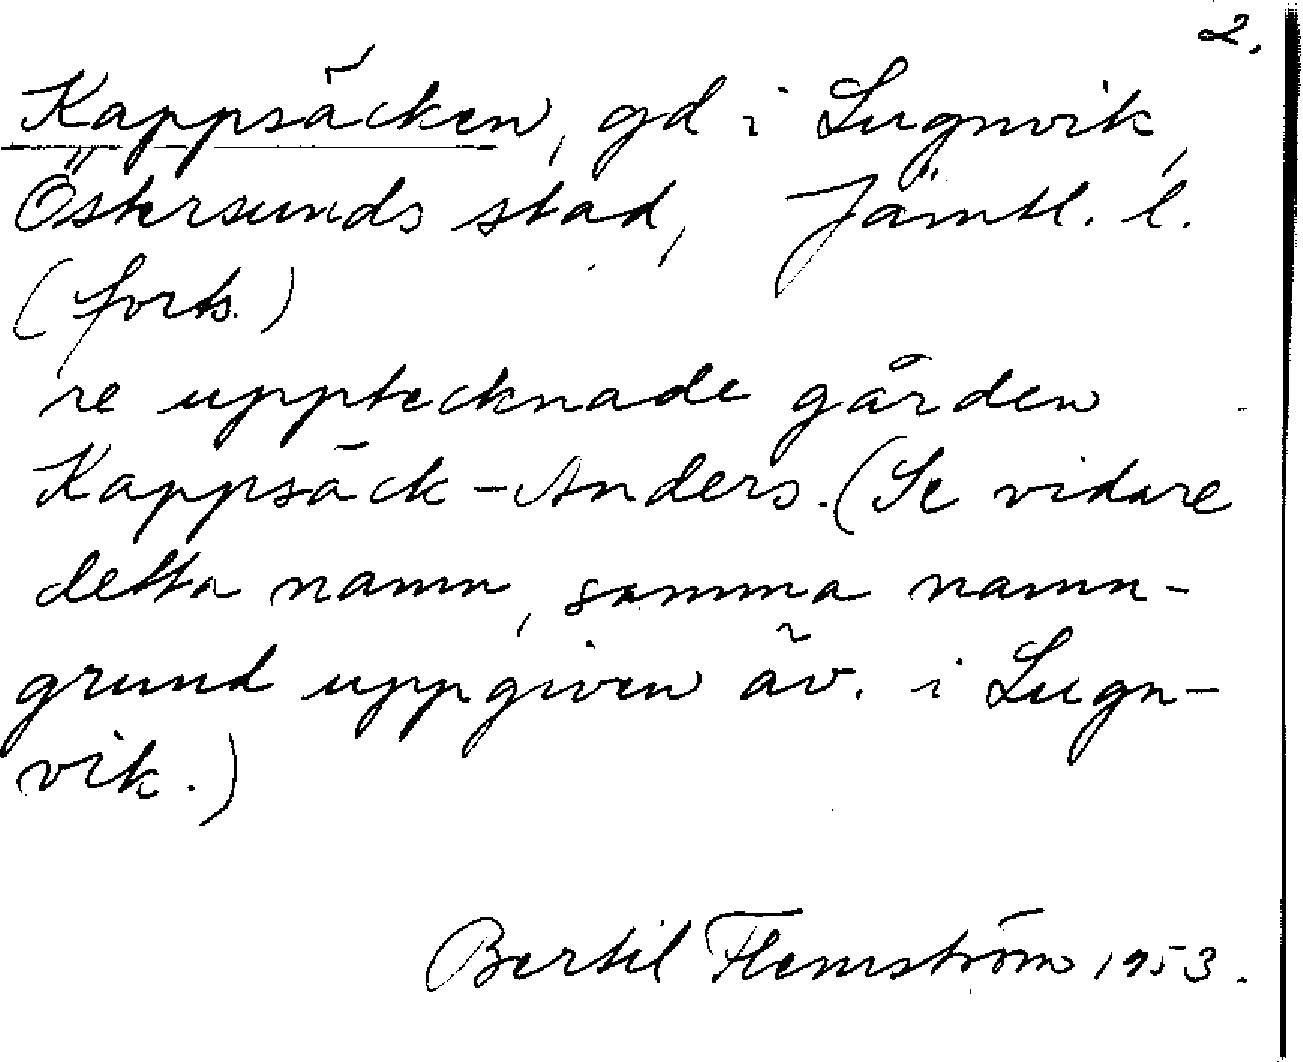 2.
Kappsäcken, gd i Lugnvik,
Östersunds stad, Jämtl. l.
(forts.)
re upptecknade gården
Kappsäck-Anders. (Se vidare
detta namn, samma namn-
grund uppgiven äv. i Lugn-
vik.)
Bertil Flemström 1953.